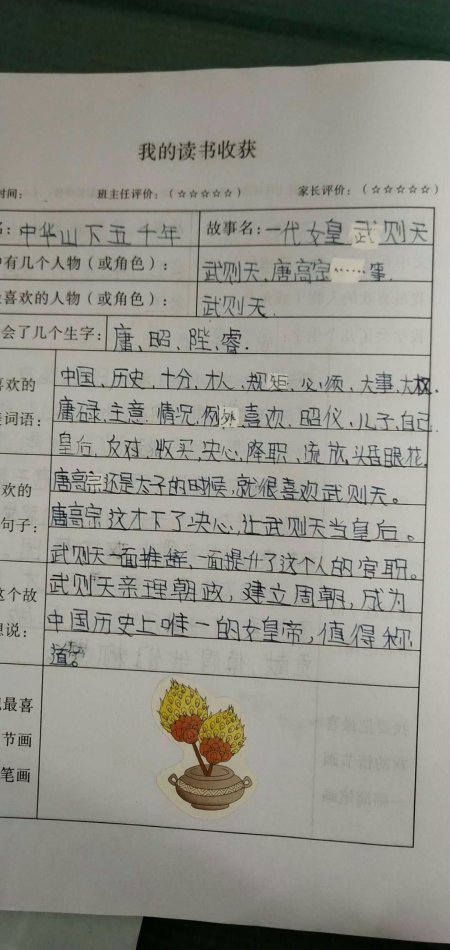 我的读书收获
时间： 班主任评价：（☆☆☆☆☆） 家长评价：（☆☆☆☆☆）
名：中华上下五千年 故事名：一代女皇武则天
中有几个人物（或角色）： 武则天、唐高宗……事.
喜欢的人物（或角色）： 武则天.
会了几个生字： 唐、昭、陛、睿.
喜欢的 中国、历史、十分、才人、规矩、必须、大事、大权、
词语： 庸碌、主意、情况、例外、喜欢、昭仪、儿子、自己.
皇后、反对、收买、决心、降职、流放、头昏眼花.
欢的 唐高宗还是太子的时候，就很喜欢武则天。
句子： 唐高宗这才下了决心，让武则天当皇后。
武则天一面推辞，一面提升了这个人的官职。
这个故 武则天亲理朝政，建立周朝，成为
想说： 中国历史上唯一的女皇帝，值得称
道。
最喜
节画
笔画